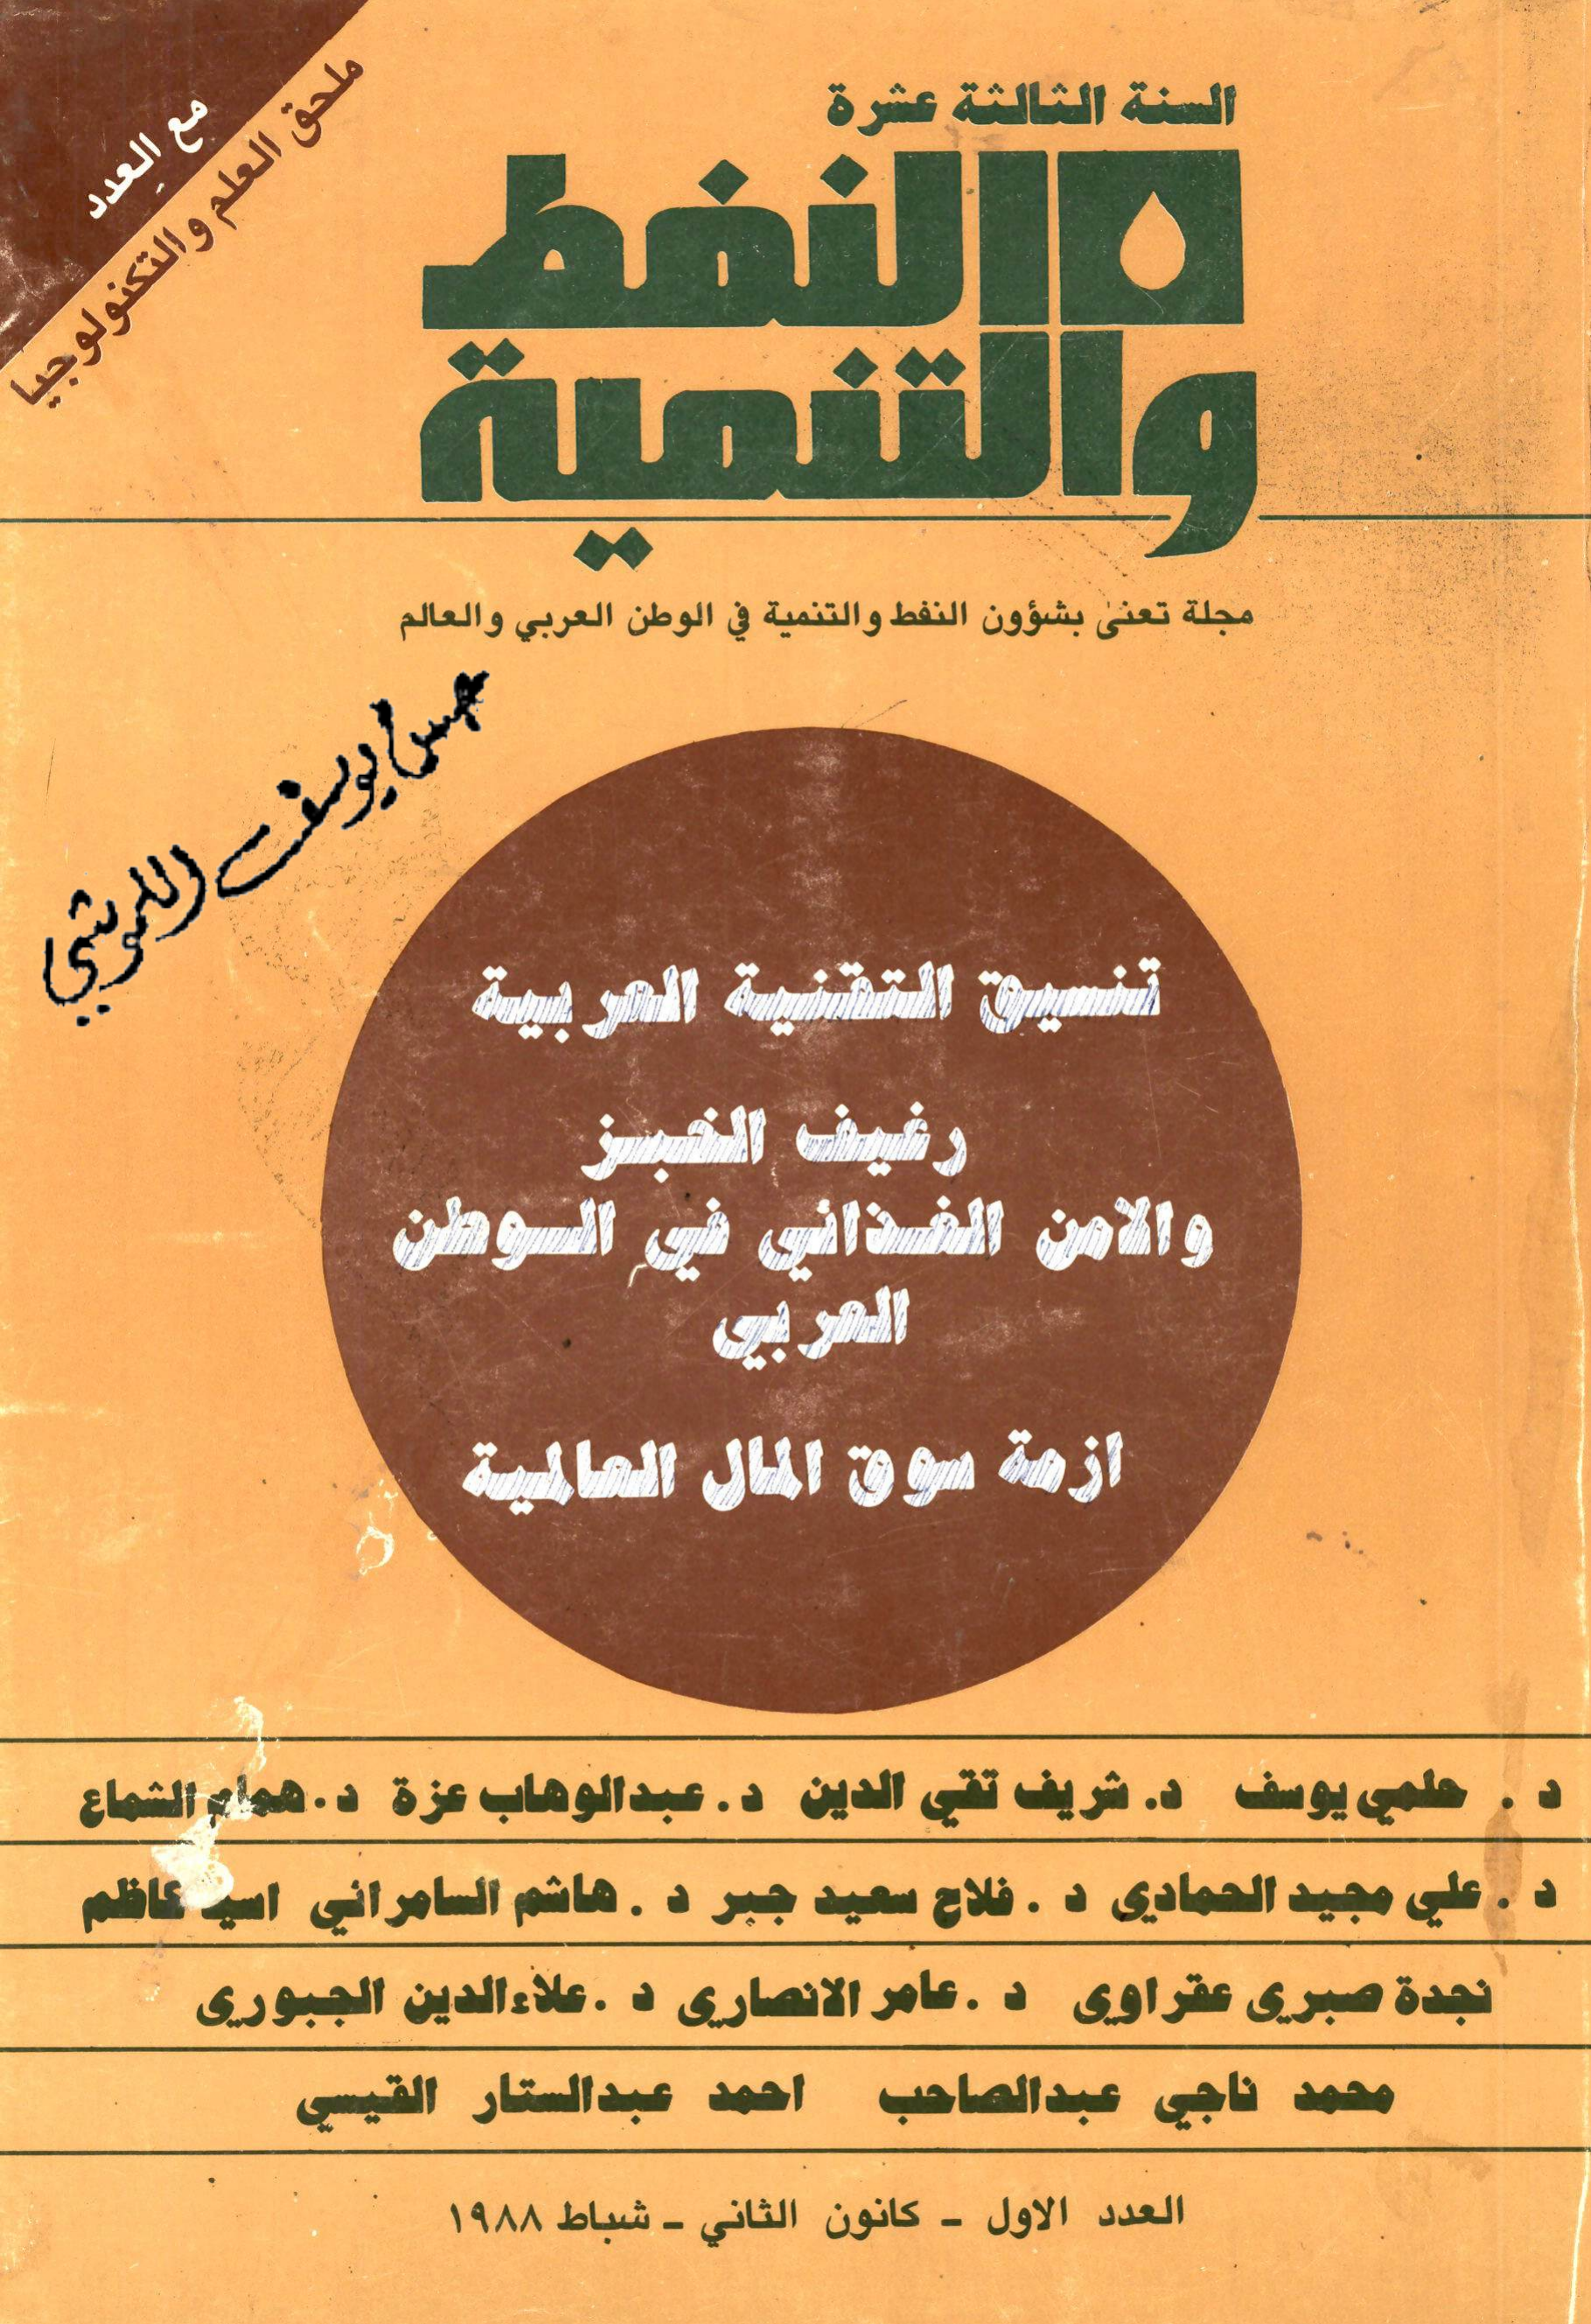 مع العدد
ملحق العلم والتكنولوجيا
السنة الثالثة عشرة
النفط
والتنمية
مجلة تعنى بشؤون النفط والتنمية في الوطن العربي والعالم
يوسف
تنسيق التقنية العربية
رغيف الخبز
والامن الغذائي في الوطن
العربي
ازمة سوق المال العالمية
د . حلمي يوسف د. شريف تقي الدين د. عبدالوهاب عزة د. همام الشماع
د . علي مجيد الحمادي د . فلاح سعيد جبر د . هاشم السامرائي كاظم
نجدة صبري عقراوي د . عامر الانصاري د . علاءالدين الجبوري
محمد ناجي عبدالصاحب احمد عبدالستار القيسي
العدد الاول - كانون الثاني - شباط ١٩٨٨